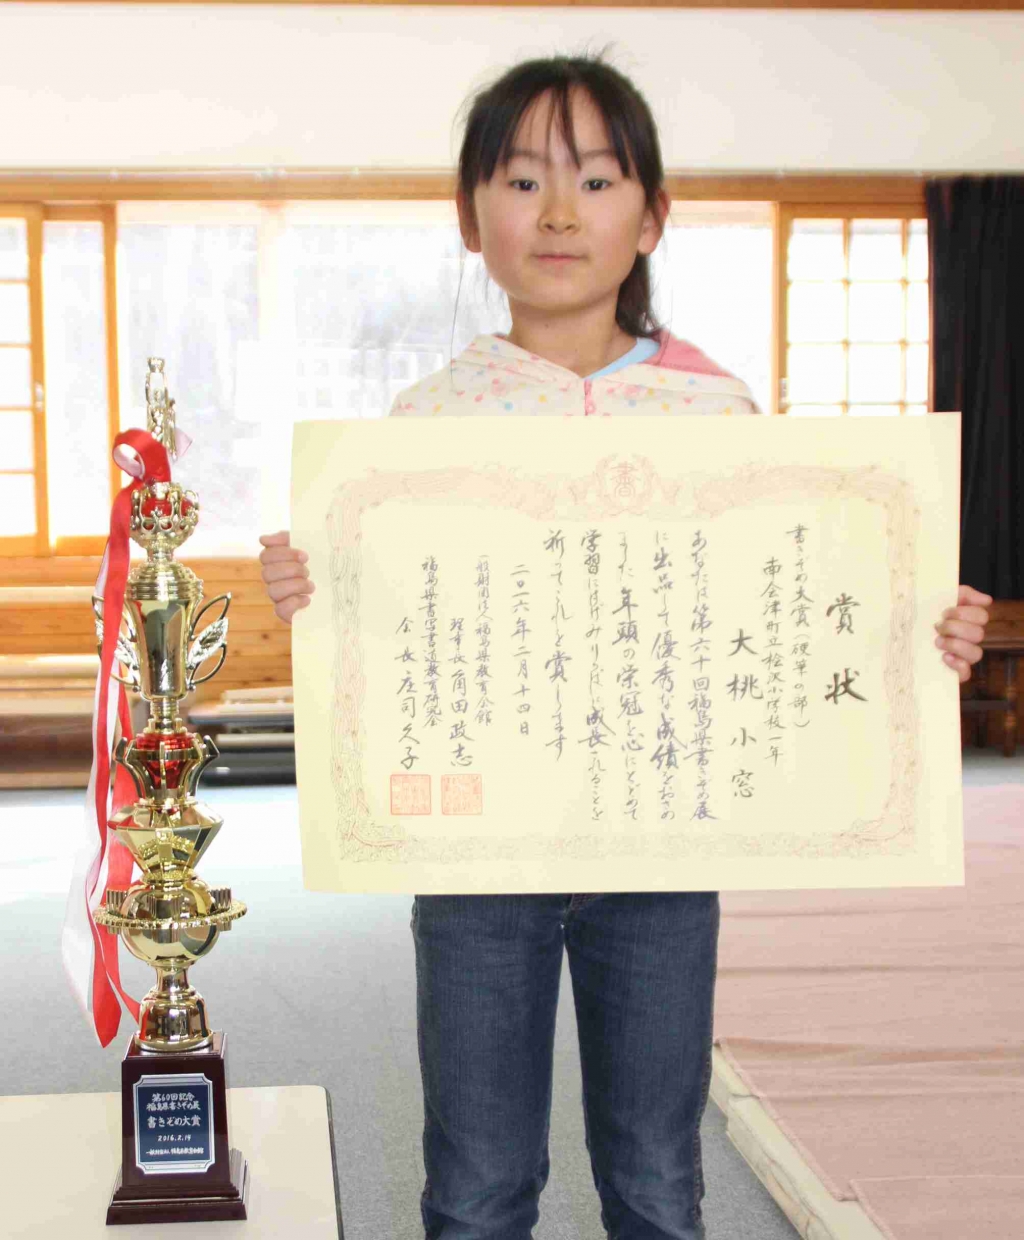 賞状
書きぞめ大賞(硬筆の部)
南会津町立桧沢小学校一年
大桃小窓
あなたは第六十回福島県書きぞめ展
に出品して優秀な成績をおさめ
ました年頭の栄冠を心にとどめて
学習にはげみりっぱに成長されることを
祈ってこれを賞します
二〇一六年二月十四日
一般財団法人福島県教育会館
理事長角田政志
福島県書写書道教育研究会
会長庄司久子
第60回記念
福島県書きぞめ展
書きぞめ大賞
2016.2.14
一般財団法人 福島県教育会館